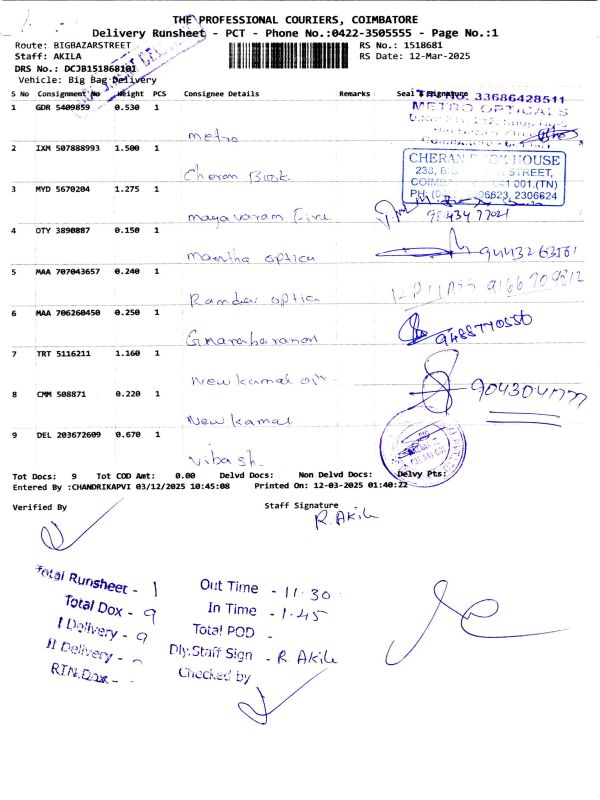 THE PROFESSIONAL COURIERS, COIMBATORE
Delivery Runsheet - PCT - Phone No.:0422-3505555 - Page No.:1
Route: BIGBAZARSTREET RS No.: 1518681
Staff: AKILA RS Date: 12-Mar-2025
DRS No.: DCJB151868101
Vehicle: Big Bag Delivery
S No Consignment No Weight PCS Consignee Details Remarks Seal & Signature
33686428511
METRO OPTICALS
1 GDR 5409859 0.530 1
metro
2 IXM 507888993 1.500 1
CHERAN BOOK HOUSE
STREET,
641 001.(TN)
2306624
Cheran Book
3 MYD 5670204 1.275 1
mayavaram Fire
9843477021
4 OTY 3890887 0.150 1
optica
9443263161
5 MAA 707043657 0.240 1
optica
9166709312
6 MAA 706260450 0.250 1
9488770550
7 TRT 5116211 1.160 1
New kamal
8 CMM 508871 0.220 1
New kamal
9 DEL 203672609 0.670 1
Vibash
Tot Docs: 9 Tot COD Amt: 0.00 Delvd Docs: Non Delvd Docs: Delvy Pts:
Entered By :CHANDRIKAPVI 03/12/2025 10:45:08 Printed On: 12-03-2025 01:40:22
Verified By Staff Signature
R. Akila
Total Runsheet - 1 Out Time - 11.30
Total Dox - 9 In Time - 1.45
I Delivery - 9 Total POD -
II Delivery - Dly.Staff Sign - R. Akila
RTN.Dox - Checked by